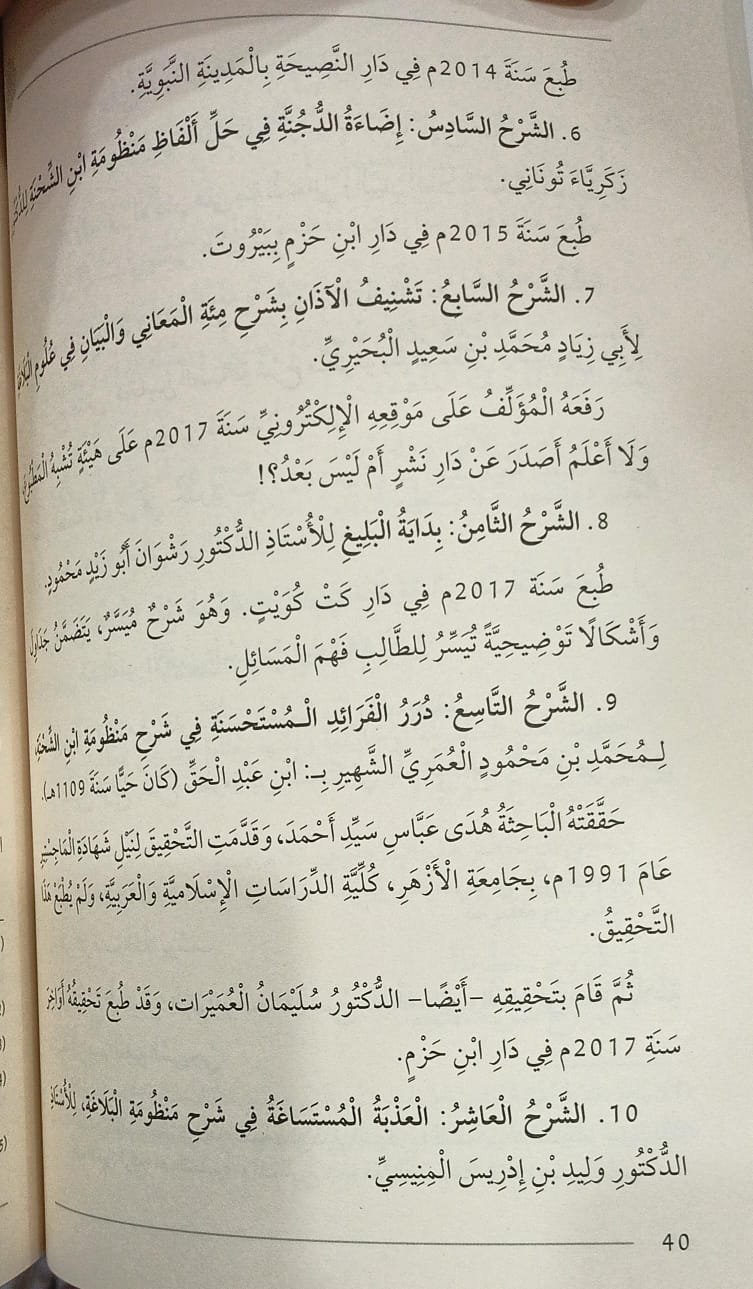 طُبِعَ سَنَةَ 2014م فِي دَارِ النَّصِيحَةِ بِالْمَدِينَةِ النَّبَوِيَّةِ.
6. الشَّرْحُ السَّادِسُ: إِضَاءَةُ الدُّجُنَّةِ فِي حَلِّ أَلْفَاظِ مَنْظُومَةِ ابْنِ الشِّحْنَةِ
زَكَرِيَّاءَ تُونَانِي.
طُبِعَ سَنَةَ 2015م فِي دَارِ ابْنِ حَزْمٍ بِبَيْرُوتَ.
7. الشَّرْحُ السَّابِعُ: تَشْنِيفُ الْآذَانِ بِشَرْحِ مِئَةِ الْمَعَانِي وَالْبَيَانِ فِي عُلُومِ الْبَلَاغَةِ
لِأَبِي زِيَادٍ مُحَمَّدِ بْنِ سَعِيدٍ الْبُحَيْرِيِّ.
رَفَعَهُ الْمُؤَلِّفُ عَلَى مَوْقِعِهِ الْإِلِكْتُرُونِيِّ سَنَةَ 2017م عَلَى هَيْئَةٍ تُشْبِهُ الْمَطْبُوعَ،
وَلَا أَعْلَمُ أَصَدَرَ عَنْ دَارِ نَشْرٍ أَمْ لَيْسَ بَعْدُ؟!
8. الشَّرْحُ الثَّامِنُ: بِدَايَةُ الْبَلِيغِ لِلْأُسْتَاذِ الدُّكْتُورِ رَشْوَانَ أَبُو زَيْدٍ مَحْمُودٍ.
طُبِعَ سَنَة 2017م فِي دَارِ كَتْ كُوَيْتٍ. وَهُوَ شَرْحٌ مُيَسَّرٌ، يَتَضَمَّنُ جَدَاوِلَ
وَأَشْكَالًا تَوْضِيحِيَّةً تُيَسِّرُ لِلطَّالِبِ فَهْمَ الْمَسَائِلِ.
9. الشَّرْحُ التَّاسِعُ: دُرَرُ الْفَرَائِدِ الْـمُسْتَحْسَنَةِ فِي شَرْحِ مَنْظُومَةِ ابْنِ الشِّحْنَةِ،
لِـمُحَمَّدِ بْنِ مَحْمُودٍ الْعُمَرِيِّ الشَّهِيرِ بِـ: ابْنِ عَبْدِ الْحَقِّ (كَانَ حَيًّا سَنَةَ 1109هـ).
حَقَّقَتْهُ الْبَاحِثَةُ هُدَى عَبَّاسِ سَيِّدِ أَحْمَدَ، وَقَدَّمَتِ التَّحْقِيقَ لِنَيْلِ شَهَادَةِ الْمَاجِسْتِيرِ
عَامَ 1991م، بِجَامِعَةِ الْأَزْهَرِ، كُلِّيَّةِ الدِّرَاسَاتِ الْإِسْلَامِيَّةِ وَالْعَرَبِيَّةِ، وَلَمْ يُطْبَعْ هَذَا
التَّحْقِيقُ.
ثُمَّ قَامَ بِتَحْقِيقِهِ -أَيْضًا- الدُّكْتُورُ سُلَيْمَانُ الْعُمَيْرَات، وَقَدْ طُبِعَ تَحْقِيقُهُ أَوَاخِرَ
سَنَةِ 2017م فِي دَارِ ابْنِ حَزْمٍ.
10. الشَّرْحُ الْعَاشِرُ: الْعَذْبَةُ الْمُسْتَسَاغَةُ فِي شَرْحِ مَنْظُومَةِ الْبَلَاغَةِ، لِلْأُسْتَاذِ
الدُّكْتُورِ وَلِيدِ بْنِ إِدْرِيسَ الْمِنِيسِيِّ.
40